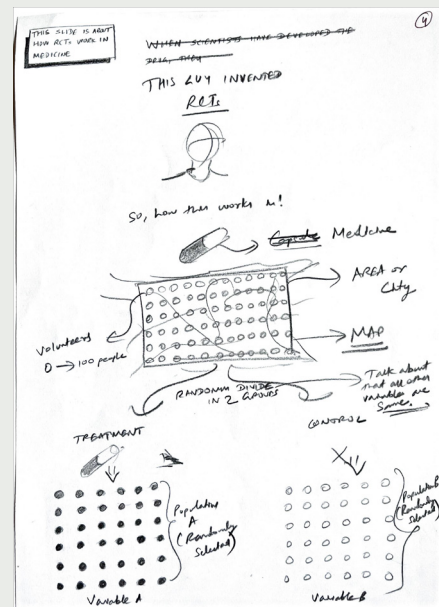 4
THIS SLIDE IS ABOUT
HOW RCTs WORK IN
MEDICINE
WHEN SCIENTISTS HAVE DEVELOPED THE
DRUG, THEY
THIS GUY INVENTED
RCTs
So, how this works is!
Capsule Medicine
AREA or
City
Volunteers
O → 100 people
MAP
RANDOMM DIVIDE
IN 2 GROUPS
Talk about
that all other
variables are
Same.
TREATMENT
CONTROL
Population
A
(Randomly
Selected)
Population B
(Randomly
Selected)
Variable A
Variable B